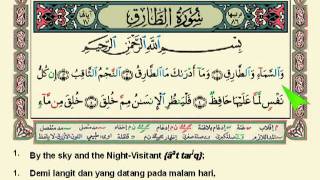 سُورَةُ الطَّارِقِ
بِسْمِ ٱللَّهِ ٱلرَّحْمَٰنِ ٱلرَّحِيمِ
وَٱلسَّمَآءِ وَٱلطَّارِقِ ۝ وَمَآ أَدْرَىٰكَ مَا ٱلطَّارِقُ ۝ ٱلنَّجْمُ ٱلثَّاقِبُ ۝ إِن كُلُّ
نَفْسٍ لَّمَّا عَلَيْهَا حَافِظٌ ۝ فَلْيَنظُرِ ٱلْإِنسَٰنُ مِمَّ خُلِقَ ۝ خُلِقَ مِن مَّآءٍ
1. By the sky and the Night-Visitant
1. Demi langit dan yang datang pada malam hari,